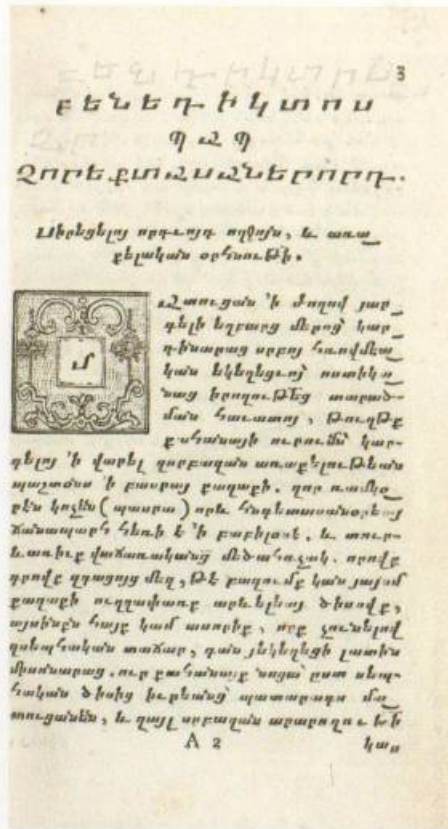 3
ԲԵՆԵԴԻԿՏՈՍ
ՊԱՊ
ՉՈՐԵՔՏԱՍԱՆԵՐՈՐԴ.
Սիրեցելոյ որդւոյդ ողջոյն, և առա
քելական օրհնութի.
Մ
Ատուցան 'ի ժողով յար
գելի եղբարց մերոց՝ կար
դինարաց սրբոյ հռովմէա
կան եկեղեցւոյ ոստիկա
նաց իրողութեց տարած-
ման հաւատոյ, թուղթք
քահանայի ուրումն կար-
գելոյ 'ի վարել զսրբազան առաքելութեան
պաշտօնս 'ի բասրայ քաղաքի. զոր ռամկօ
րէն կոչեն (պասրա) որև հնգետասանօրեայ
ճանապարհ հեռի է 'ի բաբիլօնէ. և տուր-
ևառիւք վաճառականց մեծահռչակ. որովք
գրովք զգացոյց մեզ, թէ բազումք կան յայսմ
քաղաքի ուղղափառք արևելեայ ծիսովք,
այսինքն հայք կամ ասորիք, որք չունելով
զսեպհական տաճար, գան յեկեղեցի լատին
միսօնարաց. ուր քահանայք նոցա՝ ըստ սեպ-
հական ծիսից իւրեանց՝ պատարագս մա
տուցանեն, և զայլ սրբազան արարողութի
A 2
կաս